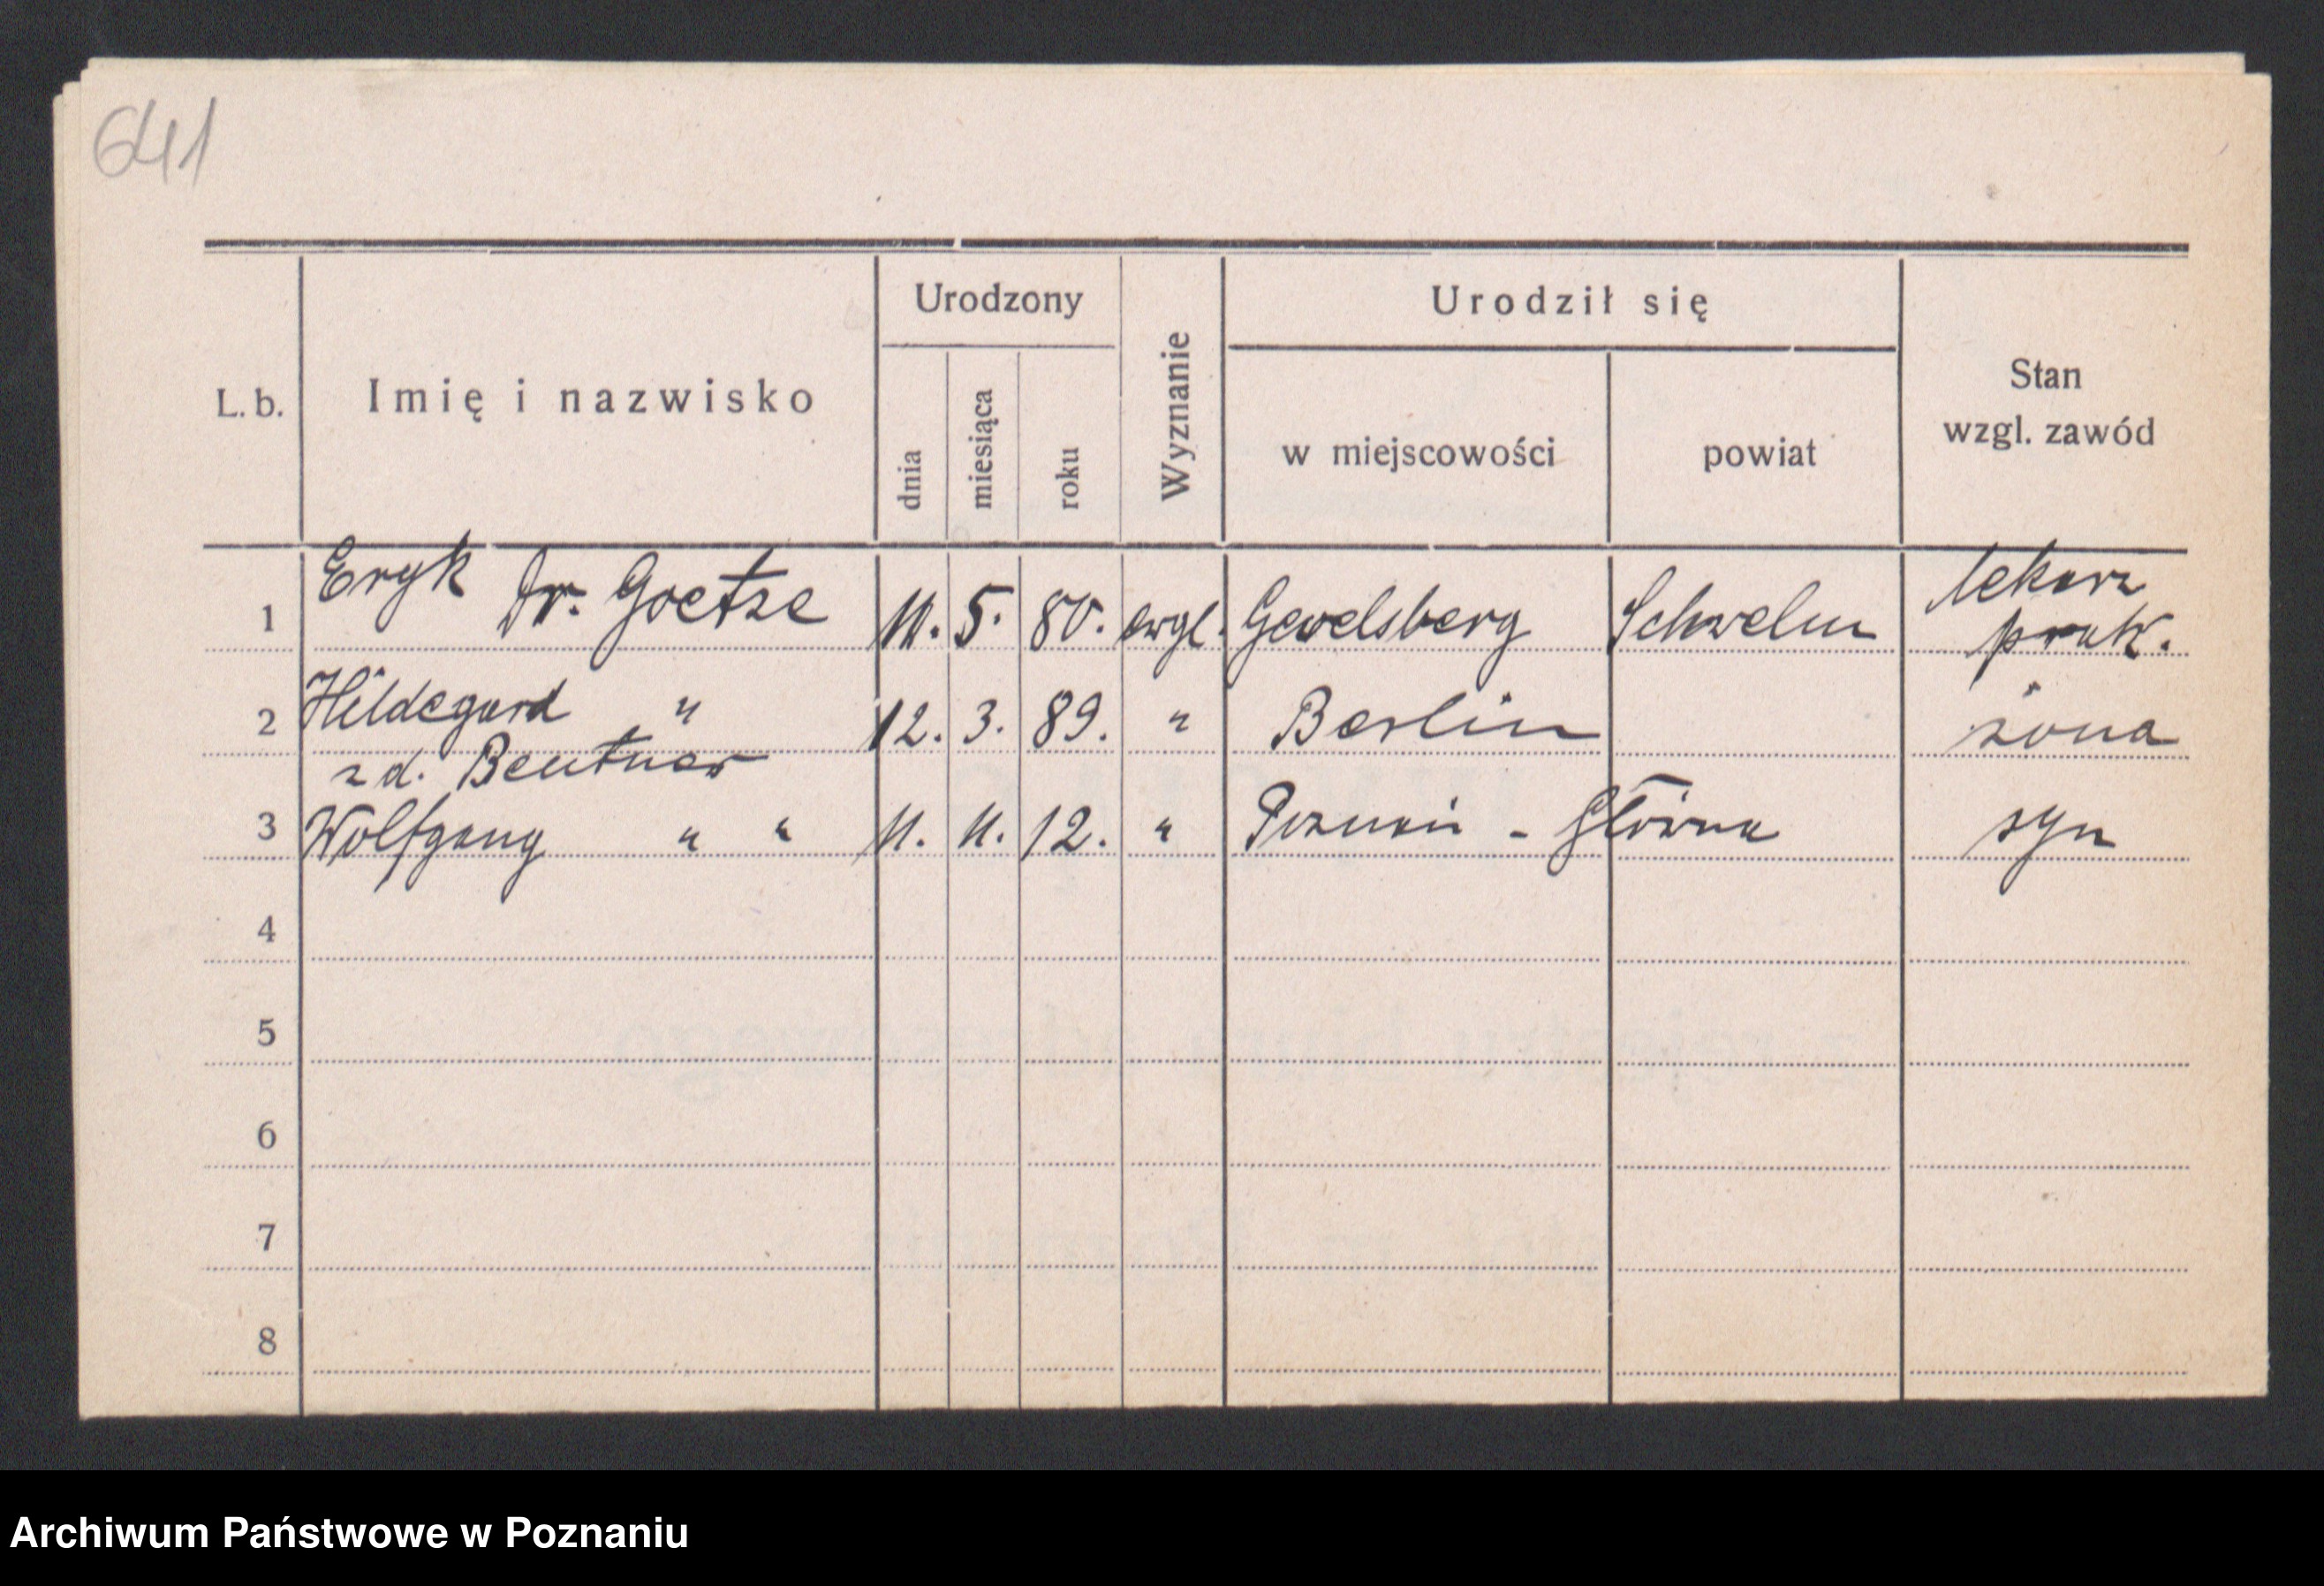 641
L. b.
Imię i nazwisko
Urodzony
dnia
miesiąca
roku
Wyznanie
Urodził się
w miejscowości
powiat
Stan
wzgl. zawód
1 Eryk Dr. Goetze 11. 5. 80. ewgl. Gevelsberg Schwelm lekarz
prakt.
2 Hildegard " 12. 3. 89. " Berlin żona
z d. Beutner
3 Wolfgang " " 11. 11. 12. " Poznań - Główna syn
4
5
6
7
8
Archiwum Państwowe w Poznaniu